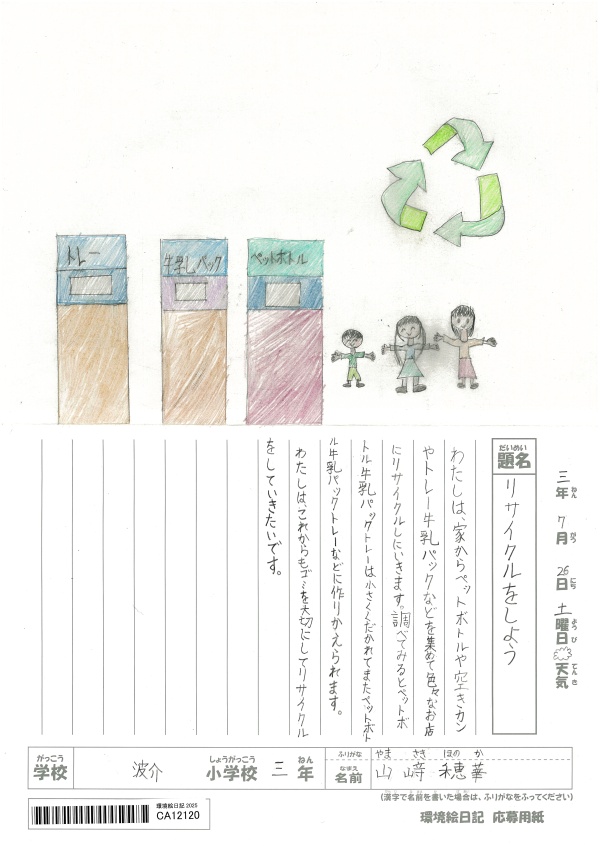 トレー
牛乳パック
ペットボトル
三年 7月 26日 土曜日 天気
ねん がつ にち ようび てんき
だいめい
題名
リサイクルをしよう
わたしは、家からペットボトルや空きカン
やトレー牛乳パックなどを集めて色々なお店
にリサイクルしにいきます。調べてみるとペットボ
トル牛乳パックトレーは小さくくだかれてまたペットボト
ル牛乳パックトレーなどに作りかえられます。
わたしは、これからもゴミを大切にしてリサイクル
をしていきたいです。
がっこう
学校
しょうがっこう ねん
波介 小学校 三 年
ふりがな やま さき ほの か
なまえ
名前 山﨑 穂華
(漢字で名前を書いた場合は、ふりがなをふってください)
環境絵日記 2025
CA12120
環境絵日記 応募用紙